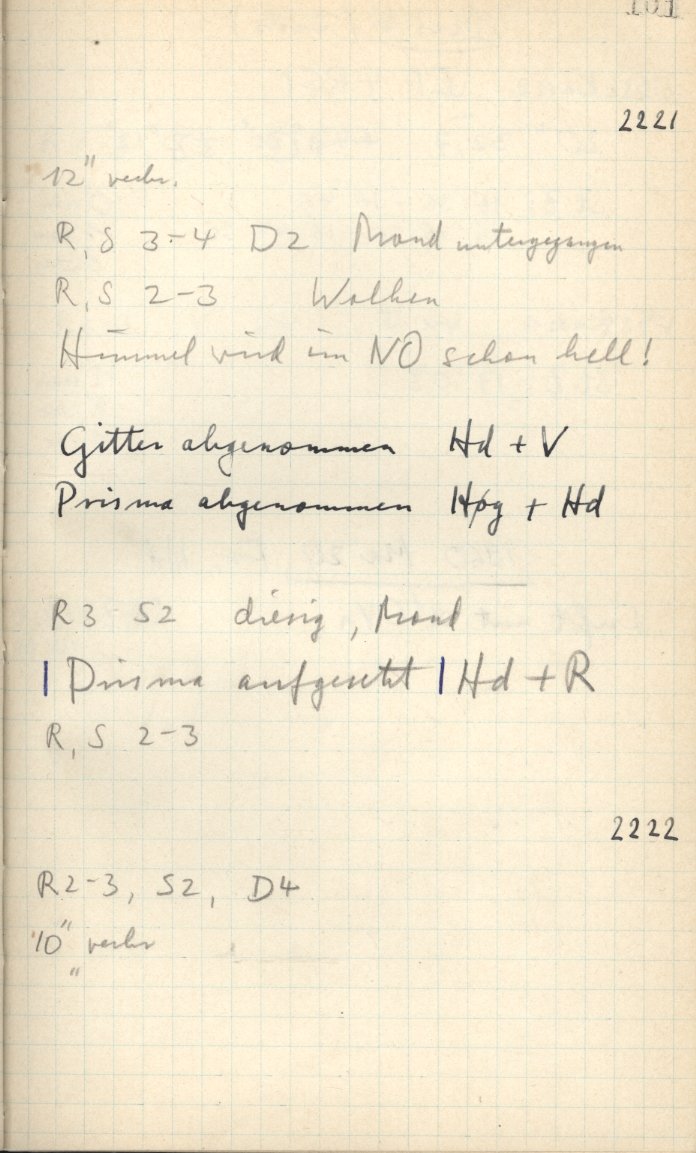 101
2221
12" verbr.
R, S 3-4 D2 Mond untergegangen
R, S 2-3 Wolken
Himmel wird im NO schon hell!
Gitter abgenommen Hd + V
Prisma abgenommen Høg + Hd
R3 S2 diesig, Mond
| Prisma aufgesetzt | Hd + R
R, S 2-3
2222
R2-3, S2, D4
10" verbr
"